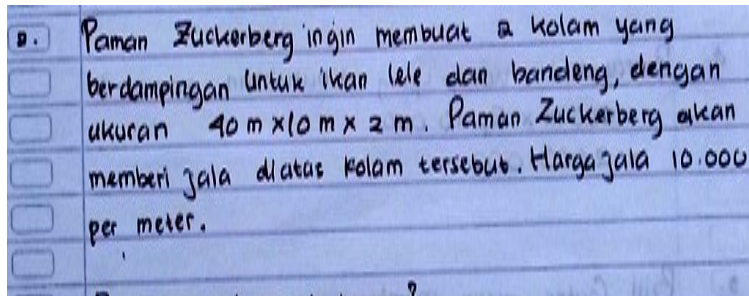 2. Paman Zuckerberg ingin membuat 2 kolam yang
berdampingan untuk ikan lele dan bandeng, dengan
ukuran 40 m x 10 m x 2 m. Paman Zuckerberg akan
memberi jala diatas kolam tersebut. Harga jala 10.000
per meter.